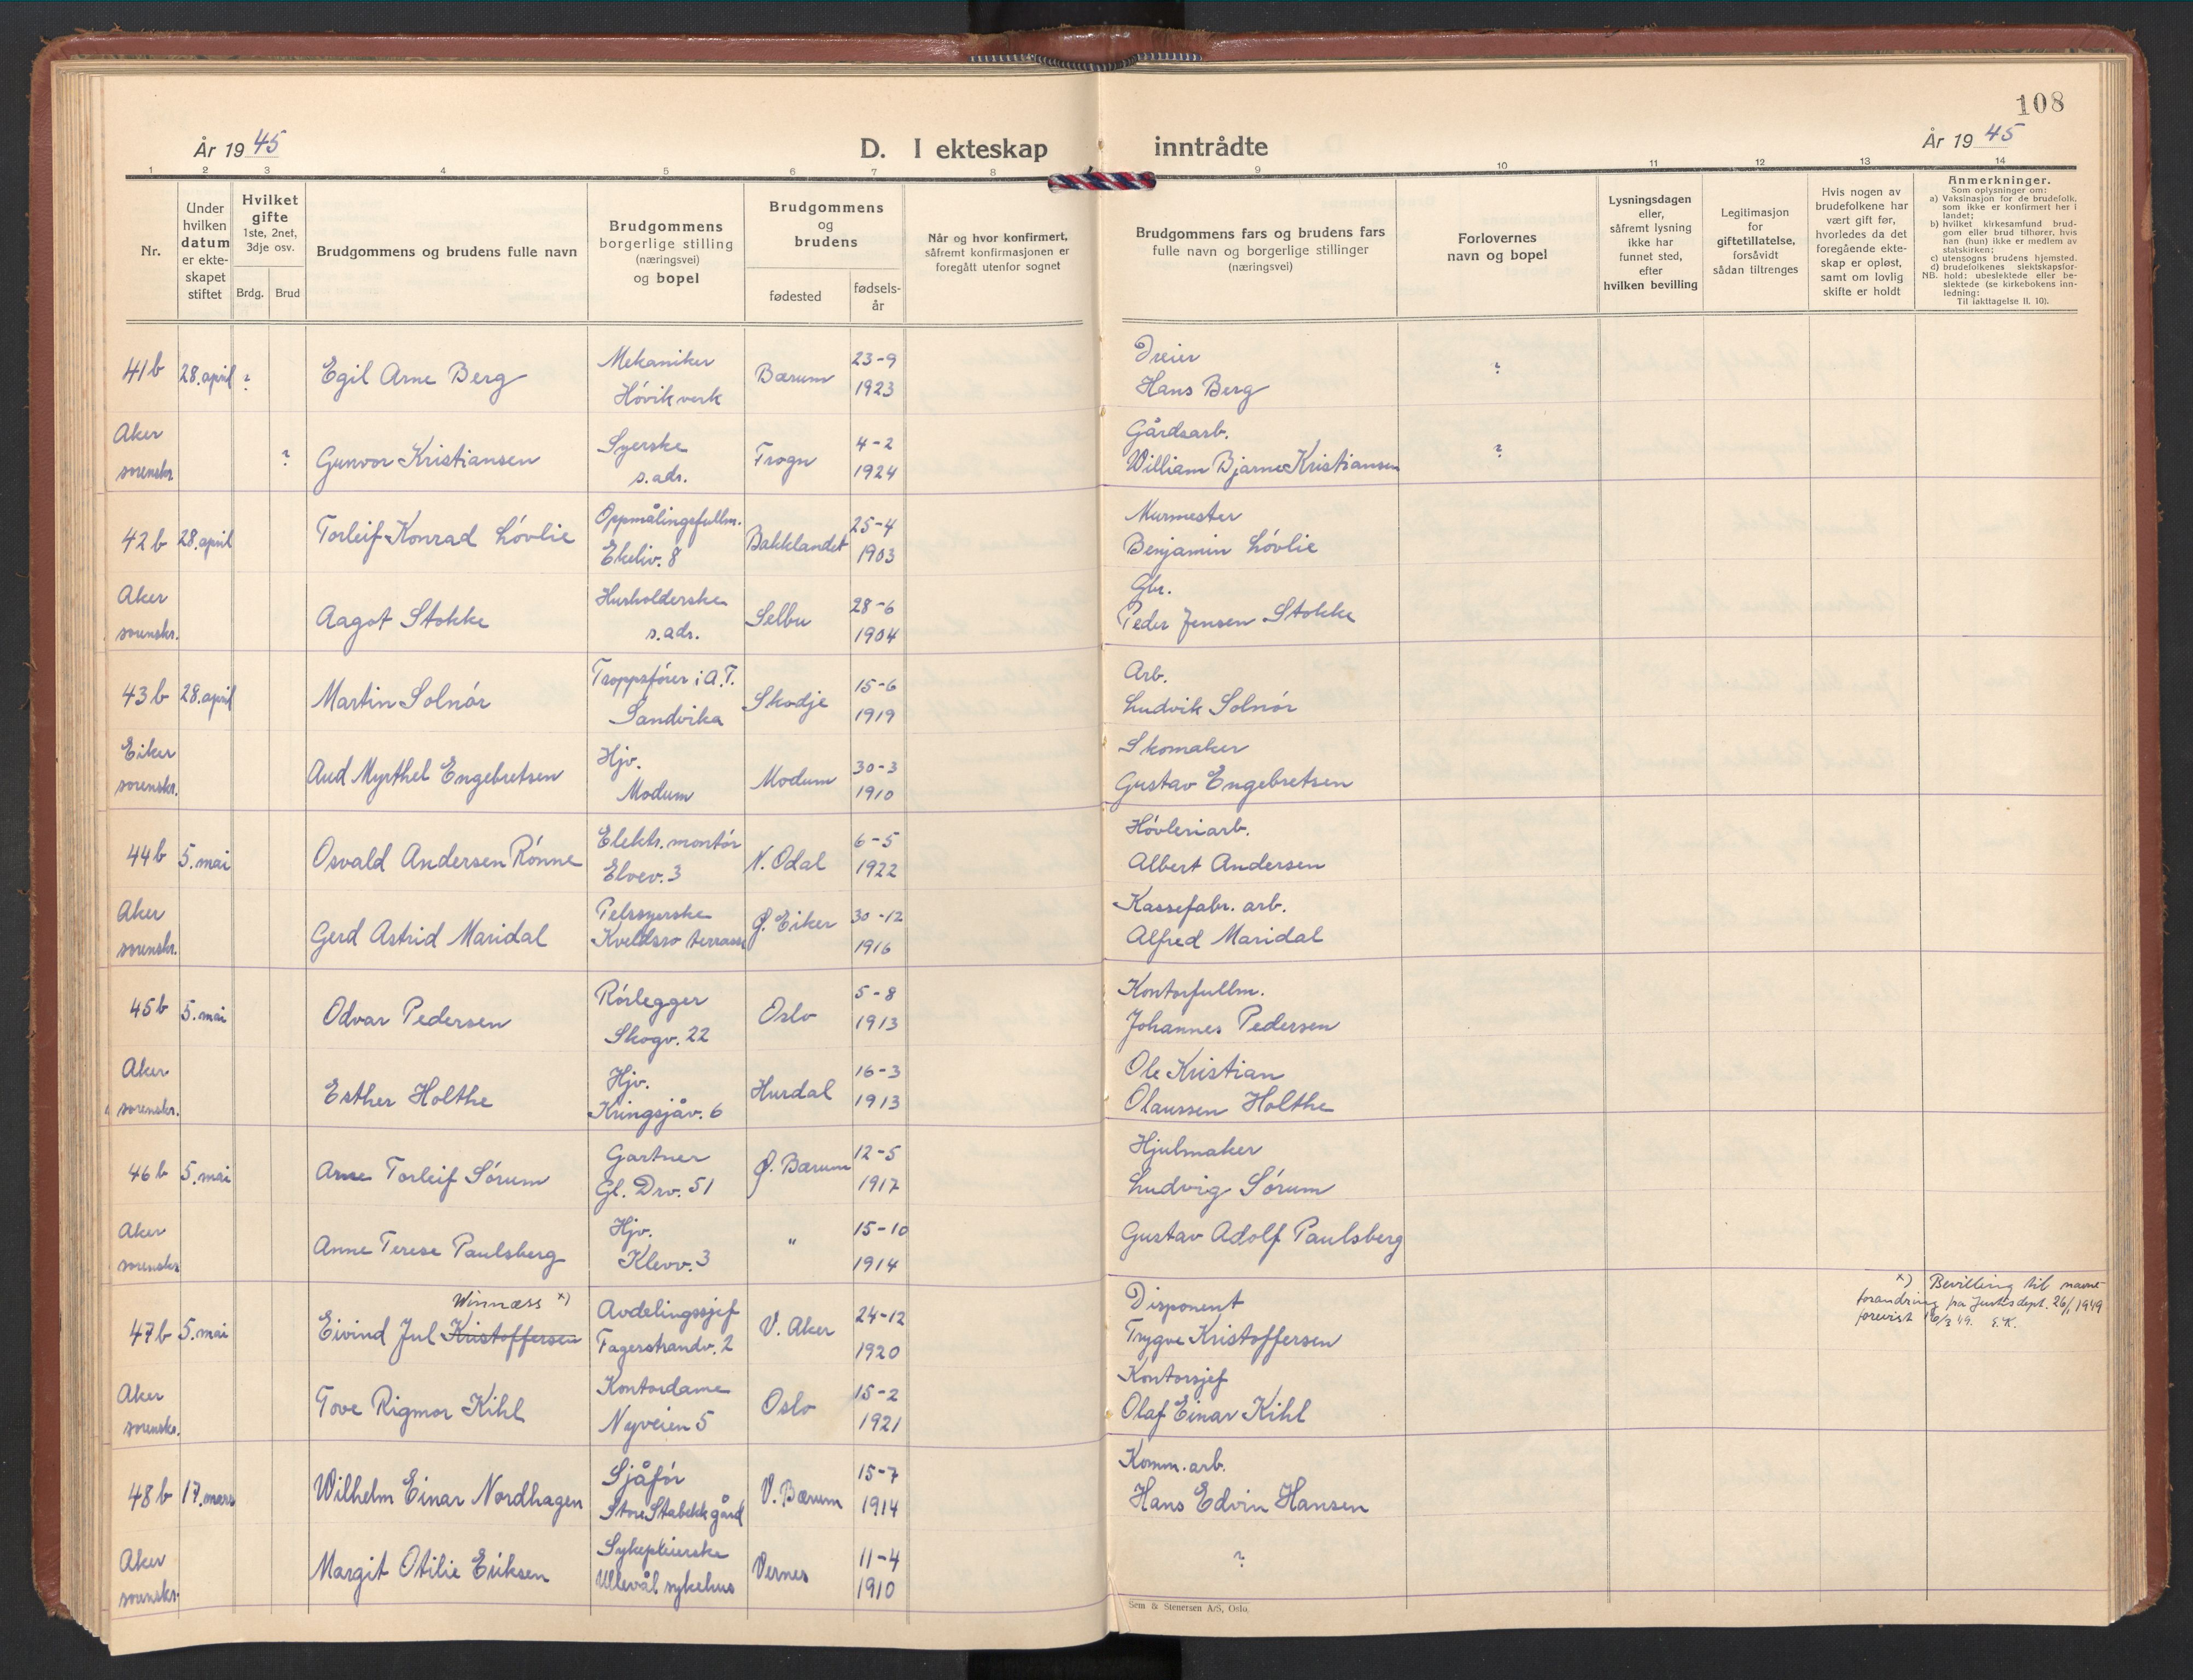 108
År 1945
D. I ekteskap inntrådte
År 1945
1 2 3 4 5 6 7 8 9 10 11 12 13 14
Nr.
Under hvilken datum er ekteskapet stiftet
Hvilket gifte
1ste, 2net, 3dje osv.
Brdg. Brud
Brudgommens og brudens fulle navn
Brudgommens borgerlige stilling (næringsvei) og bopel
Brudgommens og brudens
fødested
fødselsår
Når og hvor konfirmert, såfremt konfirmasjonen er foregått utenfor sognet
Brudgommens fars og brudens fars fulle navn og borgerlige stillinger (næringsvei)
Forlovernes navn og bopel
Lysningsdagen eller, såfremt lysning ikke har funnet sted, efter hvilken bevilling
Legitimasjon for giftetillatelse, forsåvidt sådan tiltrenges
Hvis nogen av brudefolkene har vært gift før, hvorledes da det foregående ekteskap er opløst, samt om lovlig skifte er holdt
Anmerkninger.
Som oplysninger om:
a) Vaksinasjon for de brudefolk, som ikke er konfirmert her i landet;
b) hvilket kirkesamfund brudgom eller brud tilhører, hvis han (hun) ikke er medlem av statskirken;
c) utensogns brudens hjemsted.
d) brudefolkenes slektskapsforhold; ubeslektede eller beslektede (se kirkebokens innledning:
NB.
Til iakttagelse II. 10).
41b 28. april ? Egil Arne Berg Mekaniker Høvik verk Bærum 23-9 1923 Dreier Hans Berg ?
Aker sorenskr. ? Gunvor Kristiansen Syerske s. adr. Frogn 4-2 1924 Gårdsarb. William Bjarne Kristiansen ?
42b 28. april Torleif Konrad Løvlie Oppmålingsfullm. Ekeliv. 8 Bakklandet 25-4 1903 Murmester Benjamin Løvlie
Aker sorenskr. Aagot Stokke Husholderske s. adr. Selbu 28-6 1904 Gbr. Peder Jensen Stokke
43b 28. april Martin Solnør Troppsfører i A.T. Sandvika Skodje 15-6 1919 Arb. Ludvik Solnør
Eiker sorenskr. Aud Myrthel Engebretsen Hjv. Modum Modum 30-3 1910 Skomaker Gustav Engebretsen
44b 5. mai Osvald Andersen Rønne Elektr. montør Elvev. 3 N. Odal 6-5 1922 Høvleriarb. Albert Andersen
Aker sorenskr. Gerd Astrid Maridal Pelssyerske Kveldsro terrasse Ø. Eiker 30-12 1916 Kassefabr. arb. Alfred Maridal
45b 5. mai Odvar Pedersen Rørlegger Skogv. 22 Oslo 5-8 1913 Kontorfullm. Johannes Pedersen
Aker sorenskr. Esther Holthe Hjv. Kringsjåv. 6 Hurdal 16-3 1913 Ole Kristian Olaussen Holthe
46b 5. mai Arne Torleif Sørum Gartner Gl. Drv. 51 Ø. Bærum 12-5 1917 Hjulmaker Ludvig Sørum
Aker sorenskr. Anne Terese Paulsberg Hjv. Klevv. 3 " 15-10 1914 Gustav Adolf Paulsberg
47b 5. mai Eivind Jul Kristoffersen Winnæss x) Avdelingssjef Fagerstrandv. 2 V. Aker 24-12 1920 Disponent Trygve Kristoffersen
x) Bevilling til navne-
forandring fra Justisdept. 26/1 1949
forevist 16/3 49. E.K.
Aker sorenskr. Tove Rigmor Kihl Kontordame Nyveien 5 Oslo 15-2 1921 Kontorsjef Olaf Einar Kihl
48b 17. mars Wilhelm Einar Nordhagen Sjåfør Store Stabekk gård V. Bærum 15-7 1914 Komm. arb. Hans Edvin Hansen
Aker sorenskr. Margit Otilie Eriksen Sykepleierske Ullevål sykehus Vernes 11-4 1910 ?
Sem & Stenersen A/S, Oslo.